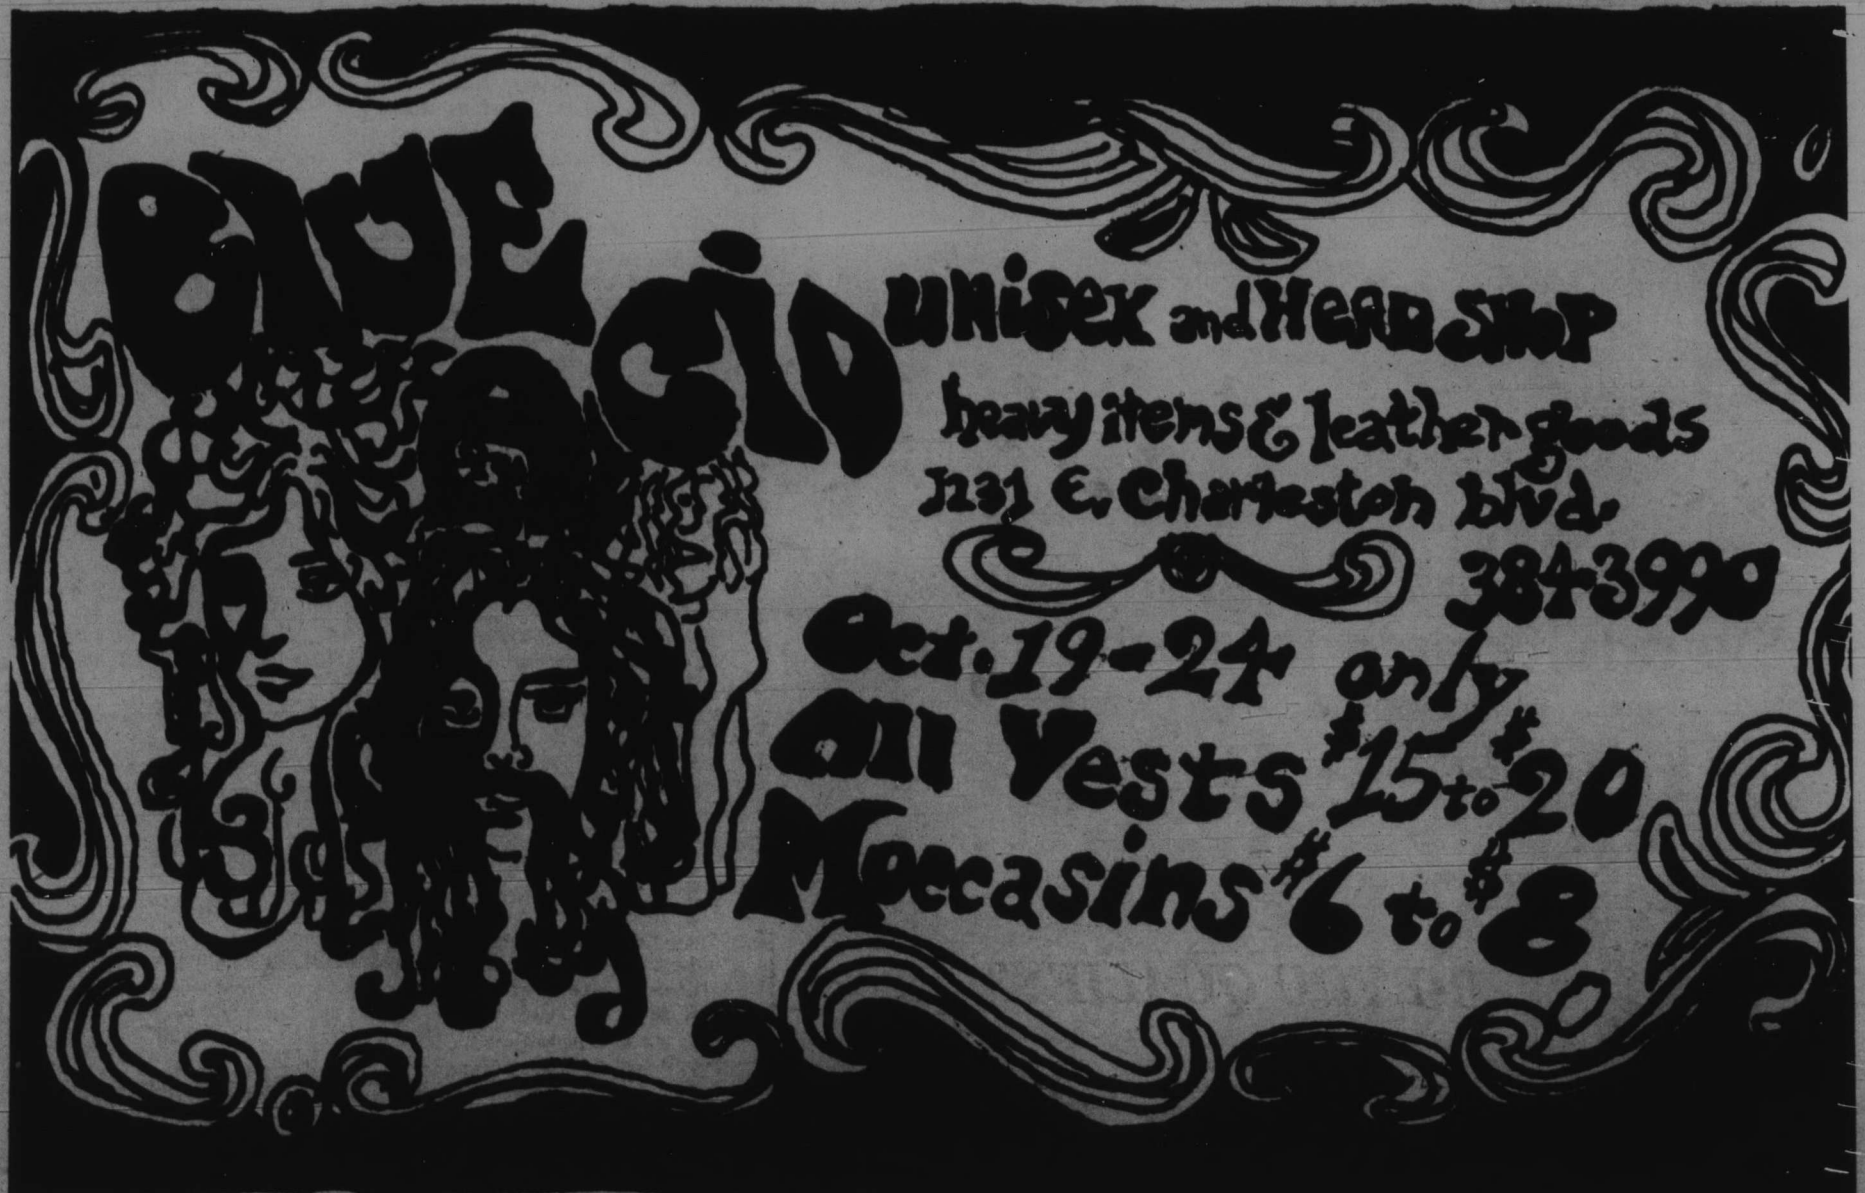 BLUE
ACiD
UNiSEX and HEAD SHOP
heavy items & leather goods
1231 E. Charleston blvd.
384-3990
Oct. 19-24 only
All Vests $15 to $20
Moccasins $6 to $8